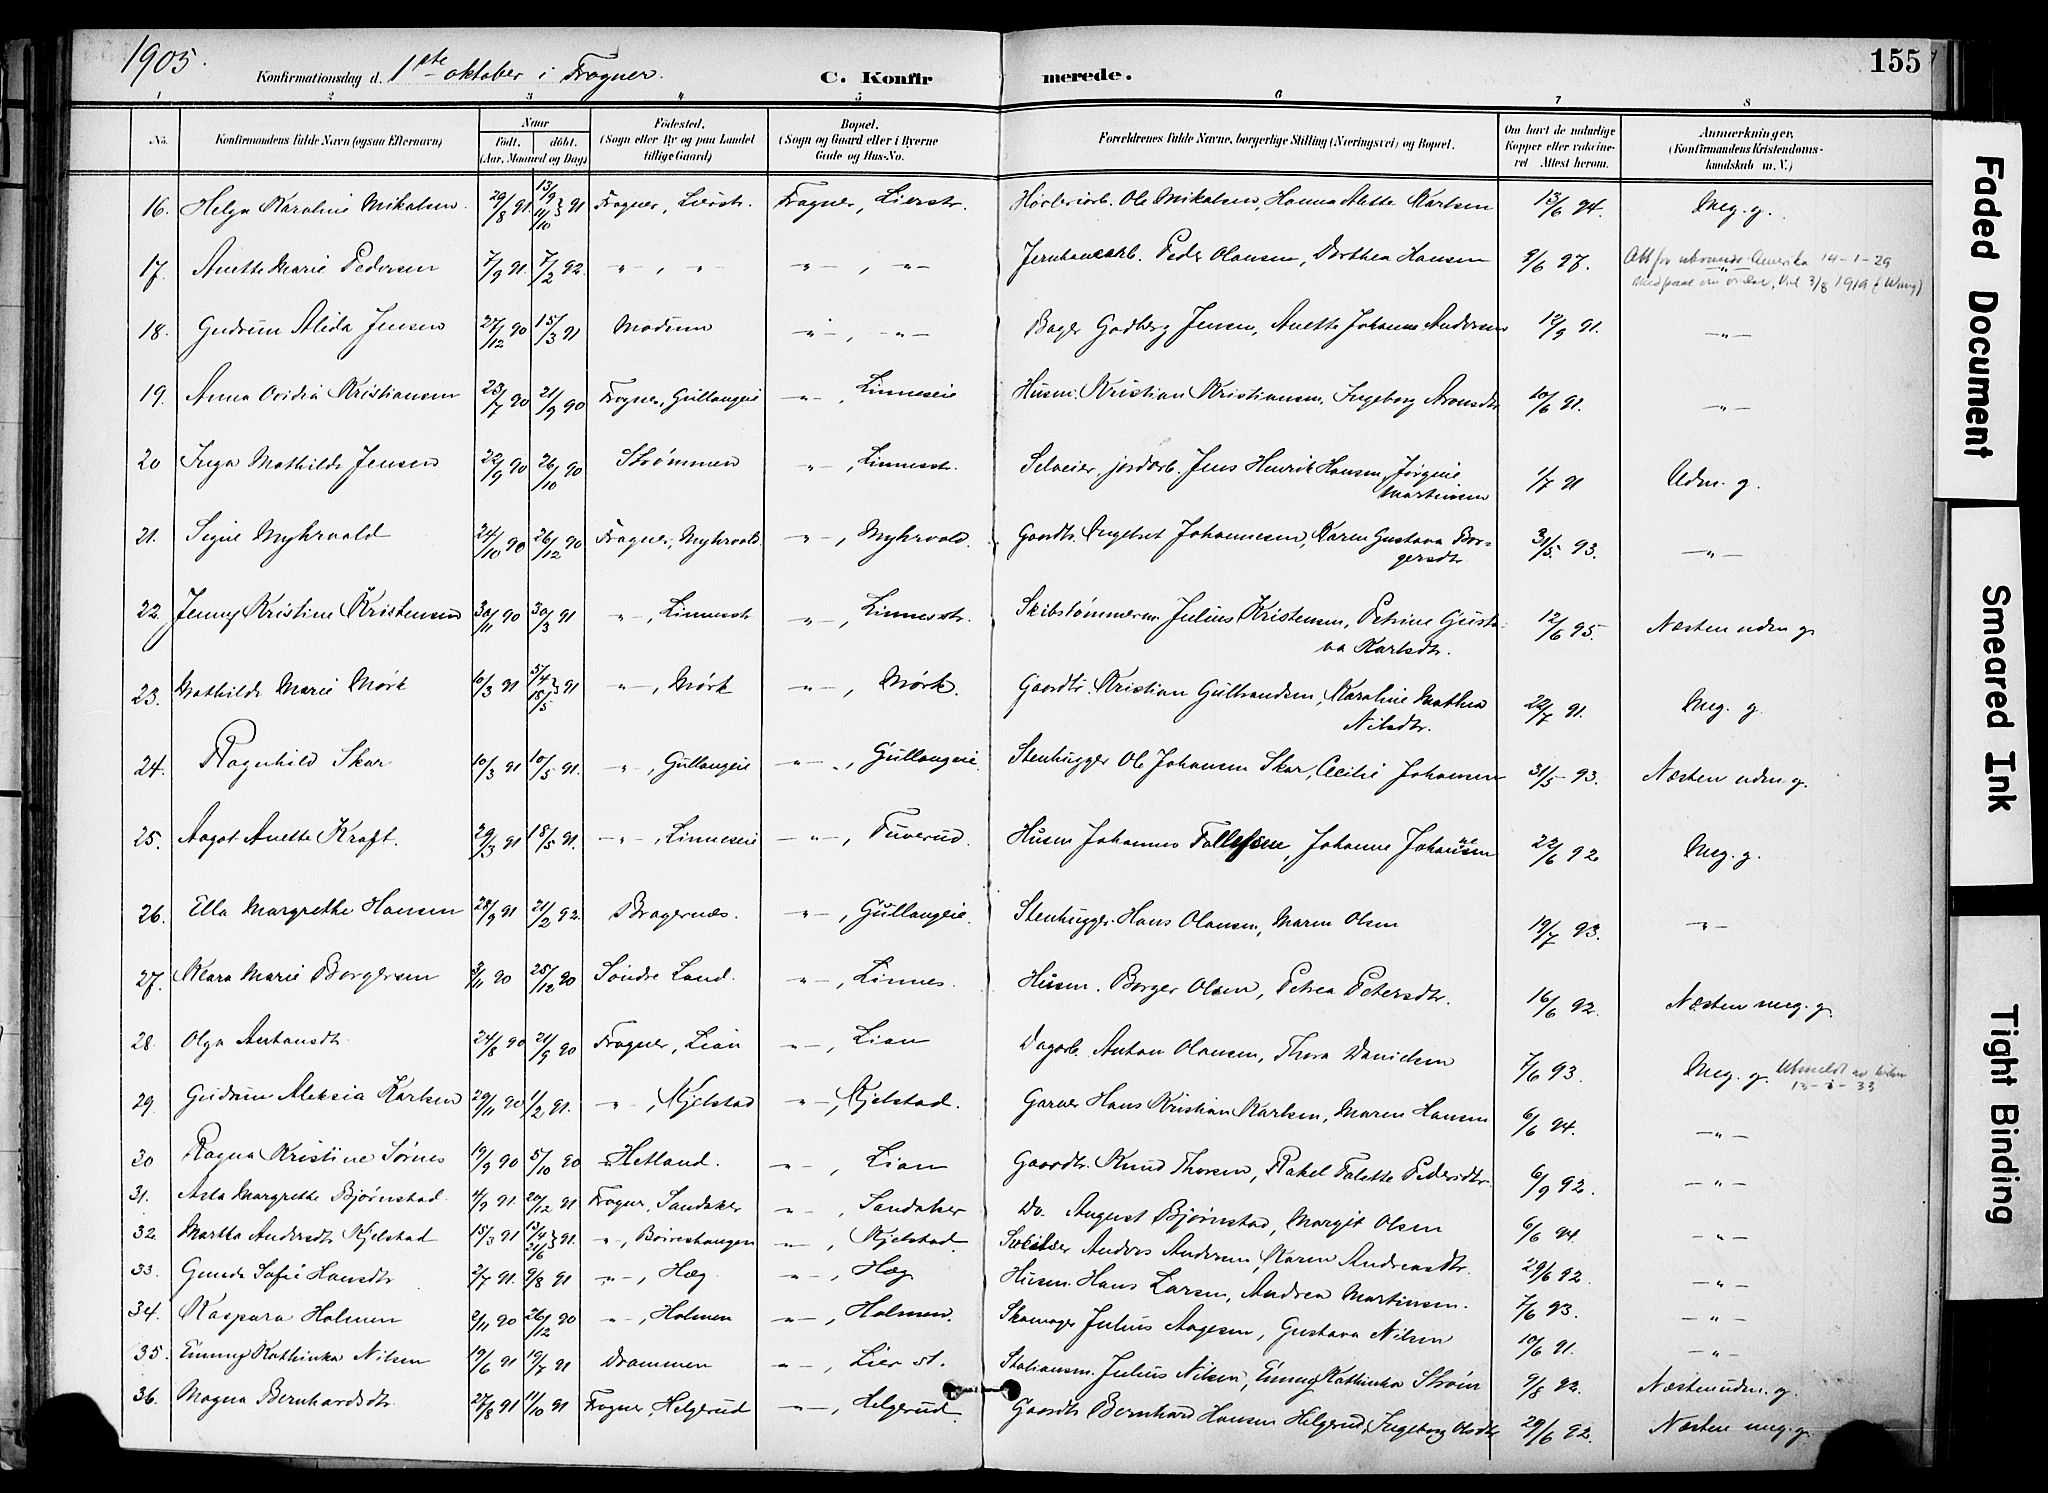 1905.
Konfirmationsdag d. 1ste oktober i Frogner.
C. Konfirmerede.
155
1 2 3 4 5 6 7 8
No. Konfirmandens fulde Navn (ogsaa Efternavn) Naar Født, døbt. (Aar, Maaned og Dag) Fødested. (Sogn eller By og paa Landet tillige Gaard) Bopæl. (Sogn og Gaard eller i Byerne Gade og Hus-No. Forældrenes fulde Navne, borgerlige Stilling (Næringsvei) og Bopæl. Om havt de naturlige Kopper eller vakcineret Attest herom. Anmærkninger. (Konfirmandens Kristendomskundskab m. V.)
16. Helga Karoline Mikalsen. 29/8 91 13/9 11/10 } 91 Frogner, Lierstr. Frogner, Lierstr. Ole Mikalsen, Hanna Alette Karlsen 13/6 94. Meg. g.
17. Anette Marie Pedersen 7/9 91 7/2 92. -"-, -"- -"-, -"- Peder Olausen, Dorthea Hansen 9/6 97. -"- Amerika 14-1-29 3/8 1919
18. Gudrun Alida Jensen 27/12 90 15/3 91 Modum -"-, -"- Bager Godberg Jensen, Anette Johanne Andersen 12/9 91. -"-
19. Anna Ovidia Kristiansen 23/7 90 21/9 90 Frogner, Gullaugeie -"-, Linneseie Husm. Kristian Kristiansen, Ingeborg Aronsdtr 10/6 91. -"-
20 Inga Mathilde Jensen 22/9 90 26/10 90 Strømmen -"-, Linnesstr. Selveier, jordarb. Jens Henrik Hansen, Jørgine Martinsen 1/7 91 Udm. g.
21. Signe Myhrvold 24/10 90 26/12 90 Frogner, Myhrvold. -"-, Myhrvold. Gaardbr. Engebret Johannesen, Karen Gustava Borgersdtr 31/5 93. -"-
22. Jenny Kristine Kristensen 30/11 90 30/3 91 -"-, Linnesstr -"-, Linnesstr. Skibstømmerm. Julius Kristensen, Petrine Gustava Karlsdtr. 12/6 95. Næsten udm. g.
23. Mathilde Marie Mørk 10/3 91 5/4 18/5 } 91 -"-, Mørk -"-, Mørk. Gaardbr. Kristian Gulbrandsen, Karoline Mathea Nilsdtr. 22/7 91. Meg. g.
24. Ragnhild Skar 10/3 91 10/5 91. -"-, Gullaugeie -"-, Gullaugeie. Stenhugger Ole Johansen Skar, Cecilie Johansen 31/5 93. Næsten udm. g.
25. Aagot Anette Kraft. 29/3 91 18/5 91. -"-, Linneseie -"-, Tuverud. Husm Johannes Tollefsen, Johanne Johansen 22/6 92 Meg. g.
26. Ella Margrethe Hansen 28/9 91 21/2 92. Bragernæs. -"-, Gullaugeie. Stenhugger Hans Olausen, Maren Olsen 19/7 93. -"-
27. Klara Marie Borgersen 3/11 90 25/12 90 Søndre Land. -"-, Linnes. Husm. Borger Olsen, Petrea Petersdtr. 16/6 92. Næsten meg. g.
28. Olga Antonsdtr. 24/8 90 21/9 90 Frogner, Lian -"-, Lian Dagarb. Anton Olausen, Thora Danielsen 7/6 93. Meg. g. Utmeldt av kirken 13-3-33
29. Gudrun Aleksia Karlsen 29/11 90 1/2 91. -"-, Kjelstad -"-, Kjelstad. Garver Hans Kristian Karlsen, Maren Hansen 6/6 94. -"-
30 Ragna Kristine Sørnes 19/9 90 5/10 90 Hetland. -"-, Lian Gaardbr. Knud Thorsen, Rakel Talette Pedersdtr. 6/9 92. -"-
31. Asta Margrethe Bjørnstad. 4/9 91. 20/12 91 Frogner, Sandaker -"-, Sandaker Do. August Bjørnstad, Margit Olsen 6/6 94. -"-
32. Martha Andersdtr Kjelstad 15/3 91 13/4 21/6 } 91. -"-, Boirestangen -"-, Kjelstad. Anders Andersen, Karen Andreasdtr. 29/6 92. -"-
33. Gunda Sofie Hansdtr 2/7 91. 9/8 91 -"-, Hæg -"-, Hæg Husm. Hans Larsen, Andrea Martinsen. 7/6 93. -"-
34. Kaspara Holmen 2/11 90 26/12 90 -"-, Holmen -"-, Holmen. Skomager Julius Aagesen, Gustava Nilsen 10/6 91. -"-
35. Emmy Kathinka Nilsen 19/6 91 19/7 91 Drammen -"-, Lier st. Stationsm. Julius Nilsen, Emmy Kathinka Strøm 9/8 92. Næsten udm. g.
36. Magna Bernhardsdtr. 27/8 91 11/10 91 Frogner, Helgerud -"-, Helgerud. Gaardbr Bernhard Hansen Helgerud, Ingeborg Olsdtr 29/6 92. Næsten meg. g.
Faded Document
Smeared Ink
Tight Binding